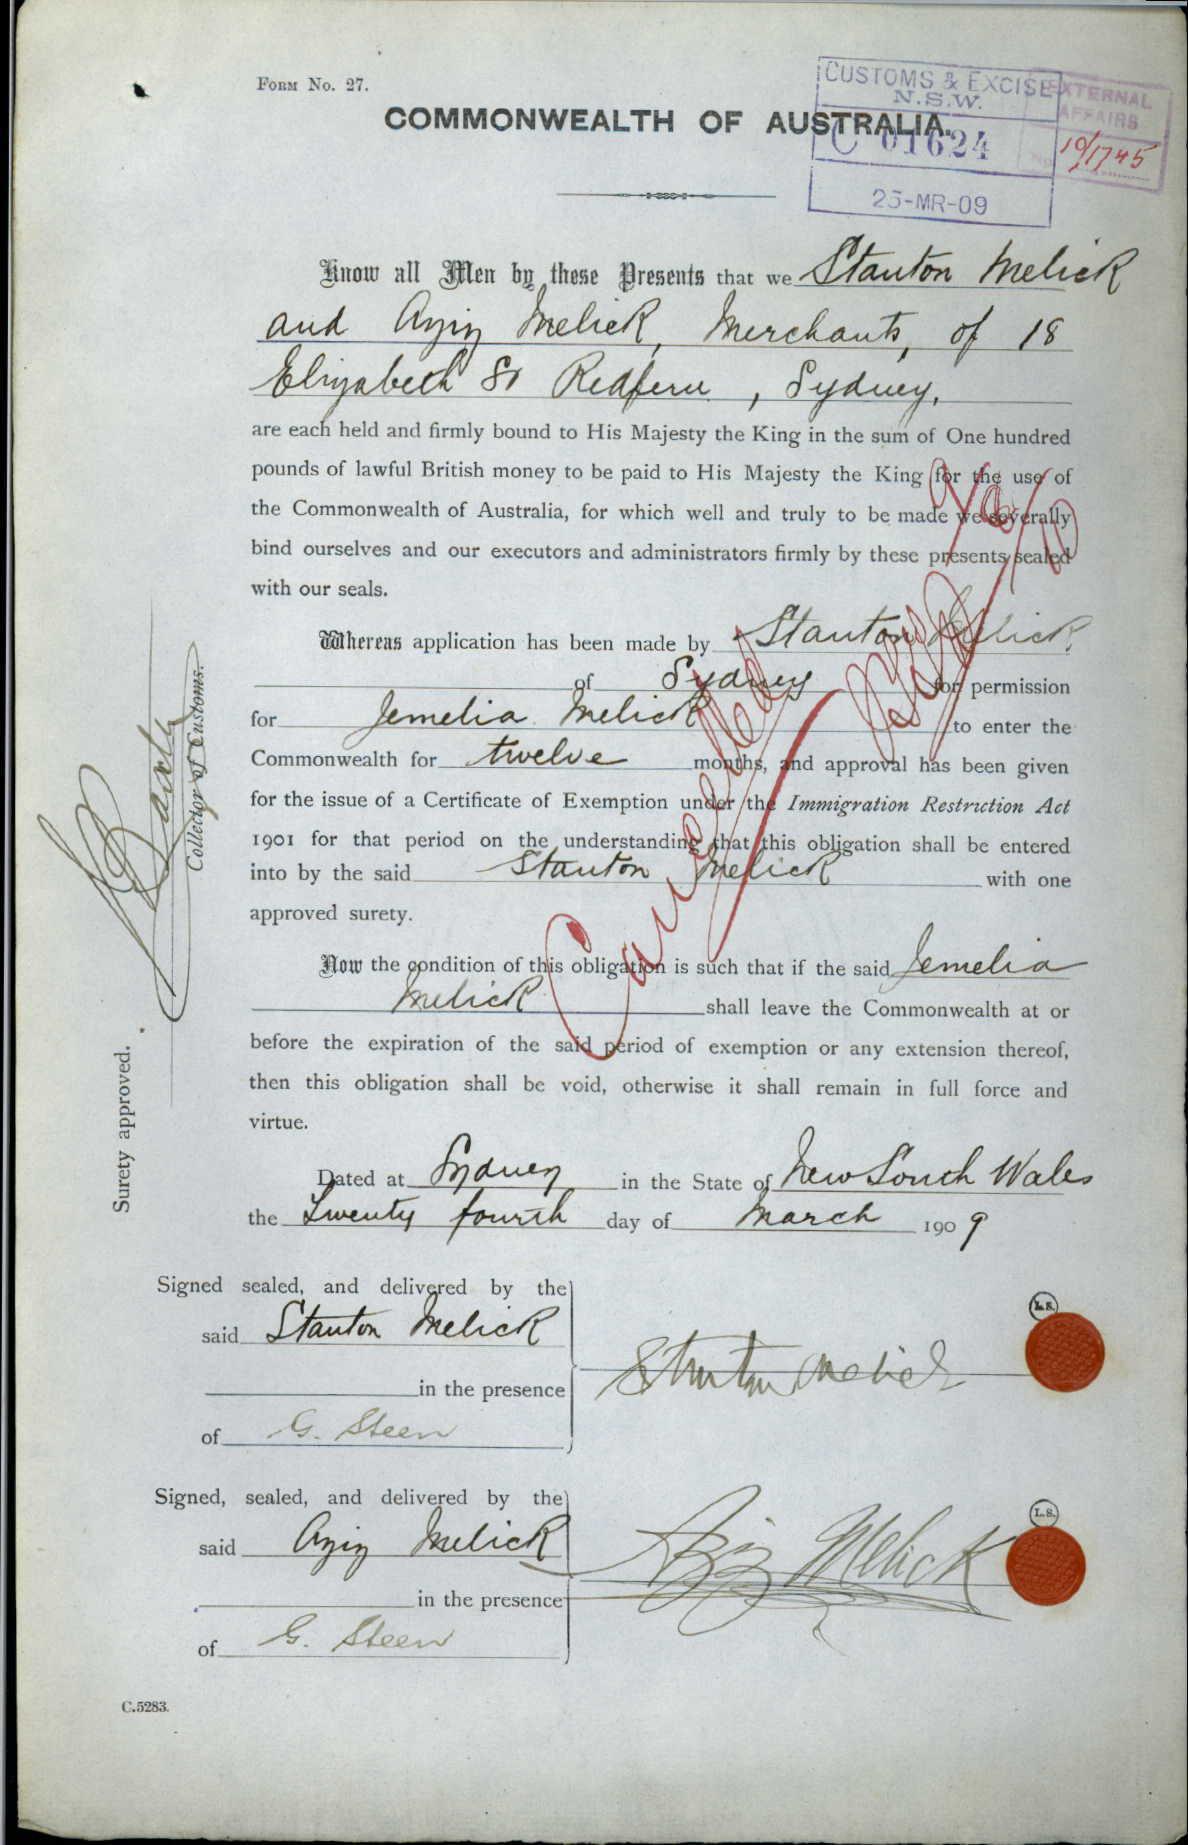 Form No. 27.
CUSTOMS & EXCISE
N.S.W.
C 01624
25-MR-09
EXTERNAL
AFFAIRS
No. 10/1745
COMMONWEALTH OF AUSTRALIA.
Know all Men by these Presents that we Stanton Melick
and Aziz Melick, Merchants, of 18
Elizabeth St Redfern, Sydney,
are each held and firmly bound to His Majesty the King in the sum of One hundred
pounds of lawful British money to be paid to His Majesty the King for the use of
the Commonwealth of Australia, for which well and truly to be made we severally
bind ourselves and our executors and administrators firmly by these presents sealed
with our seals.
Whereas application has been made by Stanton Melick
of Sydney for permission
for Jemelia Melick to enter the
Commonwealth for twelve months, and approval has been given
for the issue of a Certificate of Exemption under the Immigration Restriction Act
1901 for that period on the understanding that this obligation shall be entered
into by the said Stanton Melick with one
approved surety.
Now the condition of this obligation is such that if the said Jemelia
Melick shall leave the Commonwealth at or
before the expiration of the said period of exemption or any extension thereof,
then this obligation shall be void, otherwise it shall remain in full force and
virtue.
Cancelled
Surety approved.
Collector of Customs.
Dated at Sydney in the State of New South Wales
the Twenty fourth day of March 1909
Signed sealed, and delivered by the
said Stanton Melick
in the presence
of G. Steen
Stanton Melick
L.S.
Signed, sealed, and delivered by the
said Aziz Melick
in the presence
of G. Steen
Aziz Melick
L.S.
C.5283.